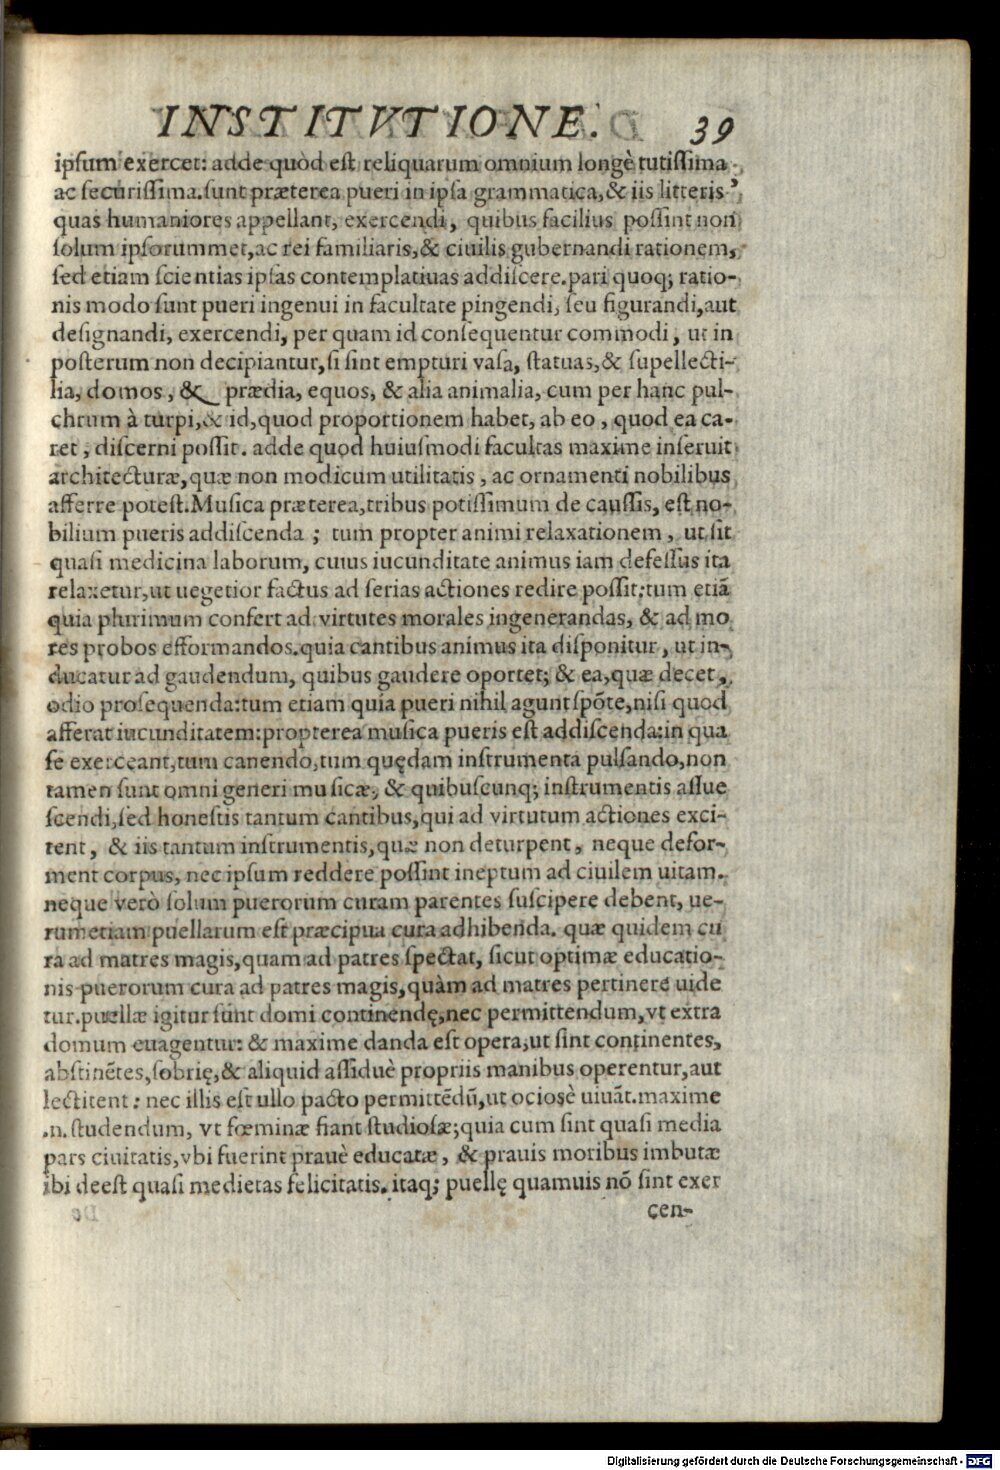 INSTITVTIONE. 39
ipsum exercet: adde quòd est reliquarum omnium longè tutissima
ac securissima. sunt præterea pueri in ipsa grammatica, & iis litteris,
quas humaniores appellant, exercendi, quibus facilius possint non
solum ipsorummet, ac rei familiaris, & ciuilis gubernandi rationem,
sed etiam scientias ipsas contemplatiuas addiscere. pari quoq; ratio-
nis modo sunt pueri ingenui in facultate pingendi, seu figurandi, aut
designandi, exercendi, per quam id consequentur commodi, ut in
posterum non decipiantur, si sint empturi vasa, statuas, & supellecti-
lia, domos, & prædia, equos, & alia animalia, cum per hanc pul-
chrum à turpi, & id, quod proportionem habet, ab eo, quod ea ca-
ret, discerni possit. adde quod huiusmodi facultas maxime inseruit
architecturæ, quæ non modicum utilitatis, ac ornamenti nobilibus
afferre potest. Musica præterea, tribus potissimum de caussis, est no-
bilium pueris addiscenda; tum propter animi relaxationem, ut sit
quasi medicina laborum, cuius iucunditate animus iam defessus ita
relaxetur, ut uegetior factus ad serias actiones redire possit: tum etiã
quia plurimum confert ad virtutes morales ingenerandas, & ad mo
res probos efformandos. quia cantibus animus ita disponitur, ut in-
ducatur ad gaudendum, quibus gaudere oportet; & ea, quæ decet,
odio prosequenda: tum etiam quia pueri nihil agunt spõte, nisi quod
afferat iucunditatem: propterea musica pueris est addiscenda: in qua
se exerceant, tum canendo, tum quędam instrumenta pulsando, non
tamen sunt omni generi musicæ, & quibuscunq; instrumentis assue
scendi, sed honestis tantum cantibus, qui ad virtutum actiones exci-
tent, & iis tantum instrumentis, quæ non deturpent, neque defor-
ment corpus, nec ipsum reddere possint ineptum ad ciuilem uitam.
neque verò solum puerorum curam parentes suscipere debent, ue-
rum etiam puellarum est præcipua cura adhibenda. quæ quidem cu
ra ad matres magis, quam ad patres spectat, sicut optimæ educatio-
nis puerorum cura ad patres magis, quàm ad matres pertinere uide
tur. puellæ igitur sunt domi continendę, nec permittendum, vt extra
domum euagentur: & maxime danda est opera, ut sint continentes,
abstinẽtes, sobrię, & aliquid assiduè propriis manibus operentur, aut
lectitent: nec illis est ullo pacto permittẽdũ, ut ociosè uiuãt. maxime
.n. studendum, vt fœminæ fiant studiosæ; quia cum sint quasi media
pars ciuitatis, vbi fuerint prauè educatæ, & prauis moribus imbutæ
ibi deest quasi medietas felicitatis. itaq; puellę quamuis nõ sint exer
cen-
Digitalisierung gefördert durch die Deutsche Forschungsgemeinschaft - DFG